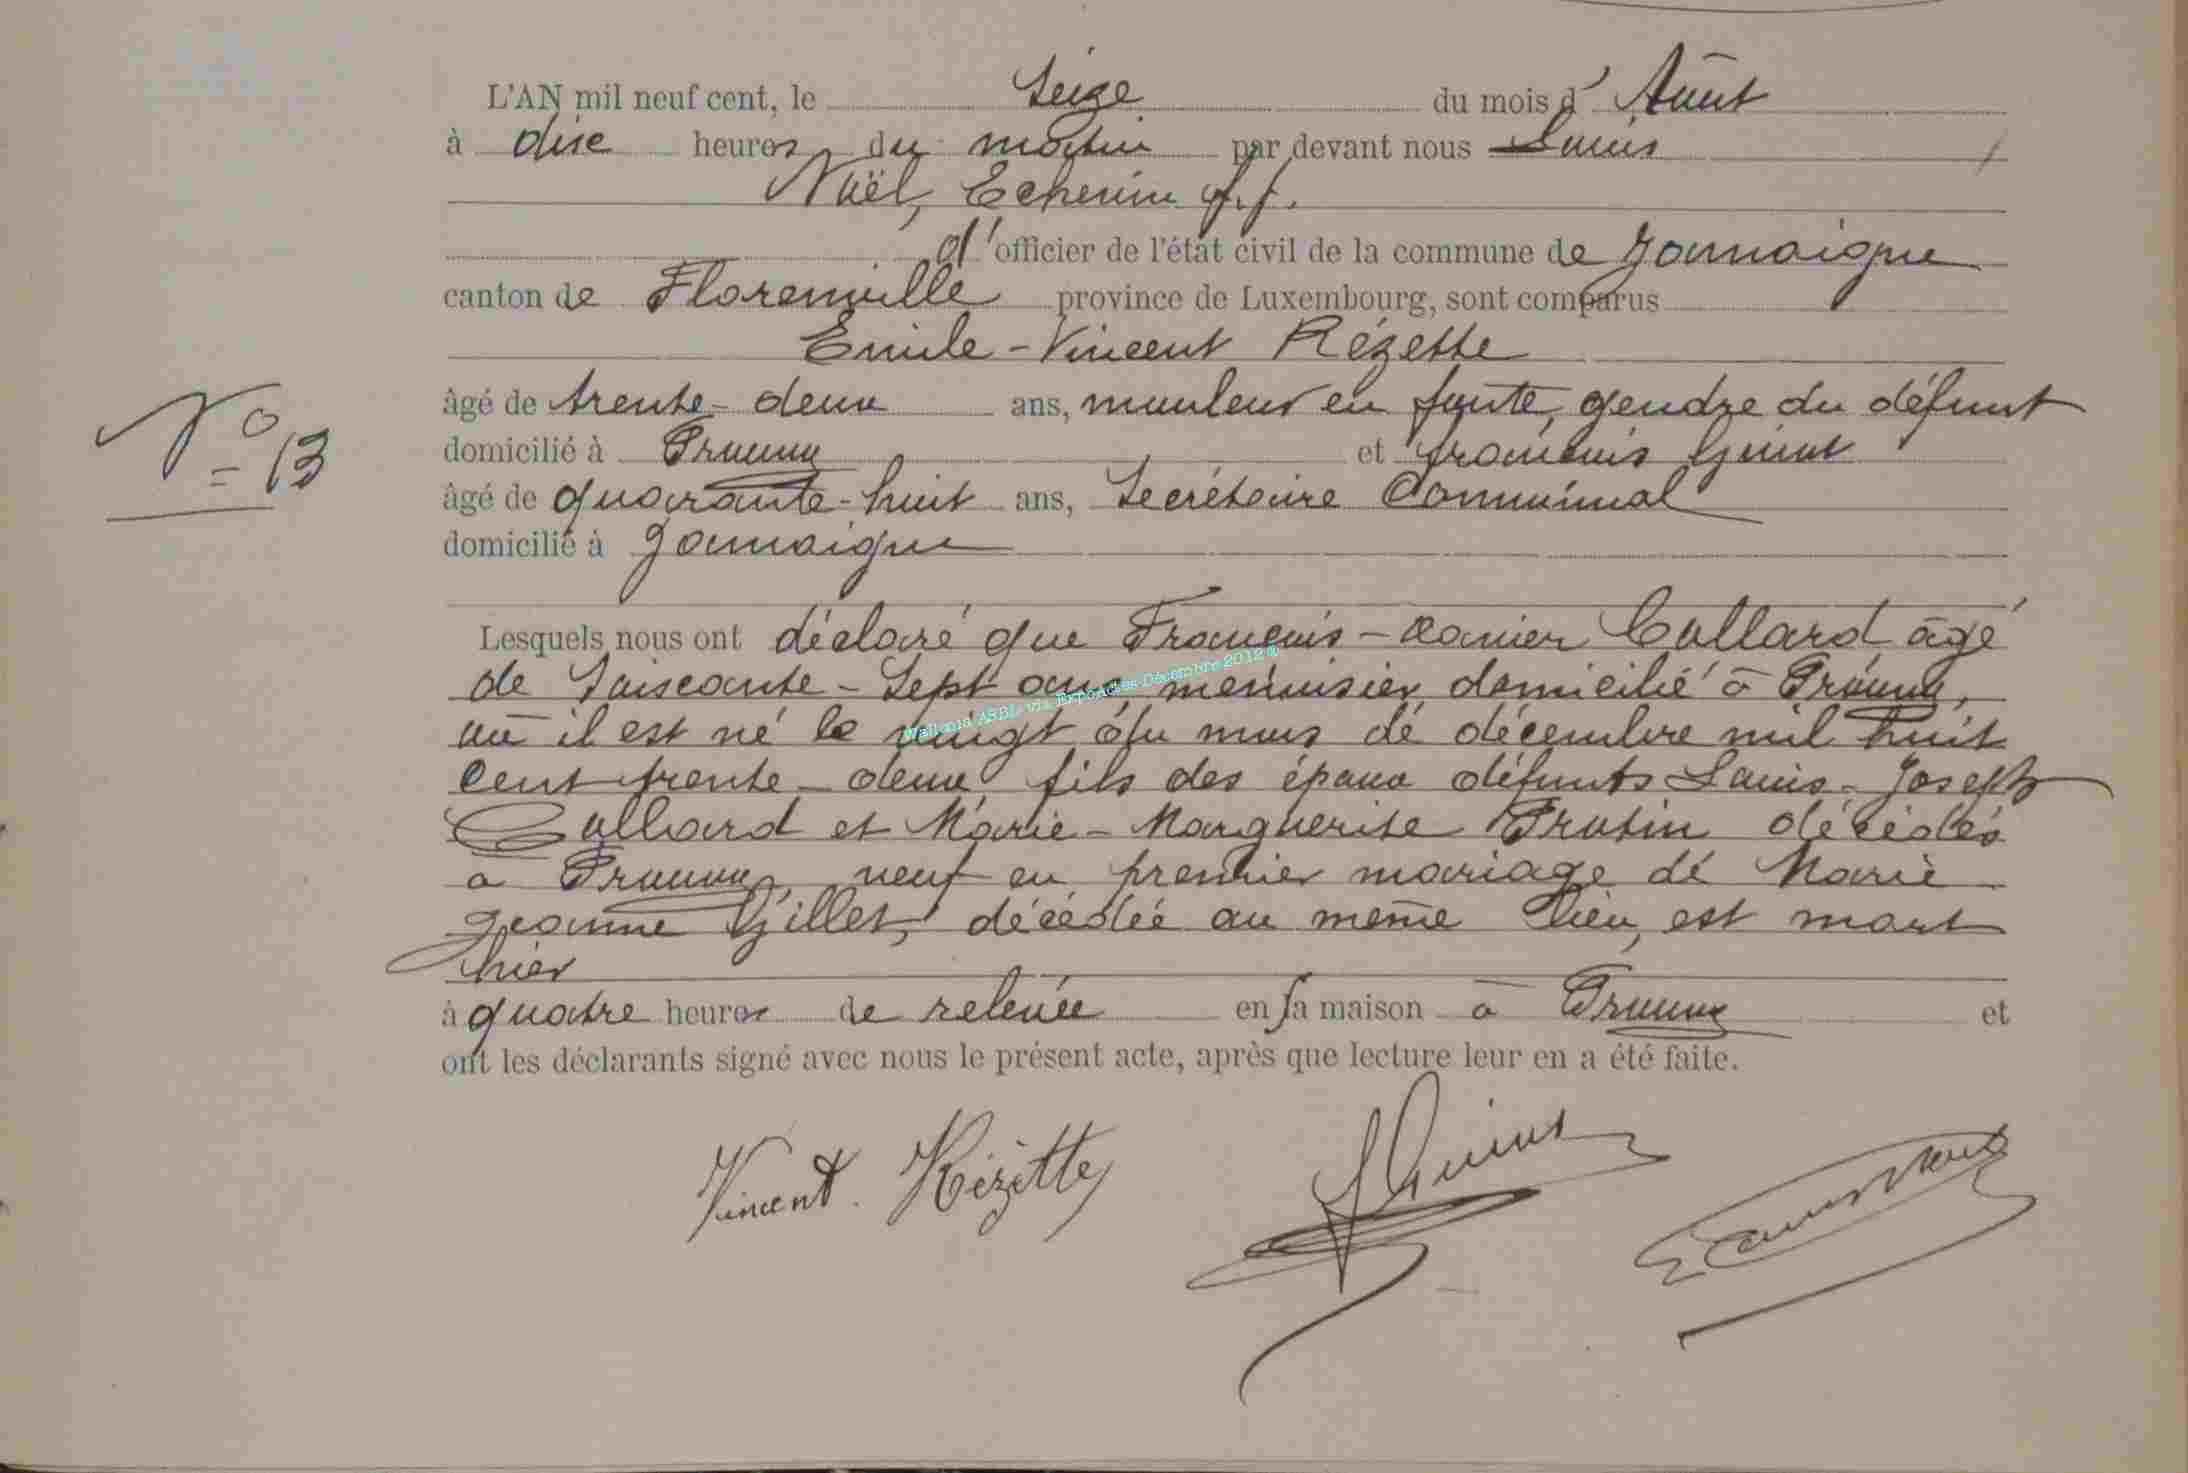 L'AN mil neuf cent, le Seize du mois d'Août
à dix heures du matin par devant nous Louis
Noël, Echevin ff.
d'officier de l'état civil de la commune de Jamoigne
canton de Florenville province de Luxembourg, sont comparus
Emile-Vincent Rézette
âgé de trente-deux ans, mouleur en fonte, gendre du défunt
domicilié à Prouvy et François Guiot
âgé de quarante-huit ans, Secrétaire Communal
domicilié à Jamoigne
N° 13
Lesquels nous ont déclaré que François-Xavier Collard âgé
de Soiscante-Sept ans, menuisier domicilié à Prouvy,
où il est né le vingt du mois de décembre mil huit
cent trente-deux, fils des époux défunts Louis-Joseph
Collard et Marie-Marguerite Protin décédés
à Prouvy, veuf en premier mariage de Marie
Jeanne Gillet, décédée au même lieu, est mort
hier
à quatre heures de relevée en sa maison à Prouvy et
ont les déclarants signé avec nous le présent acte, après que lecture leur en a été faite.
Vincent. Rézette
F Guiot
Louis Noël
Wallonia ASBL via Expoactes Décembre 2012 ®